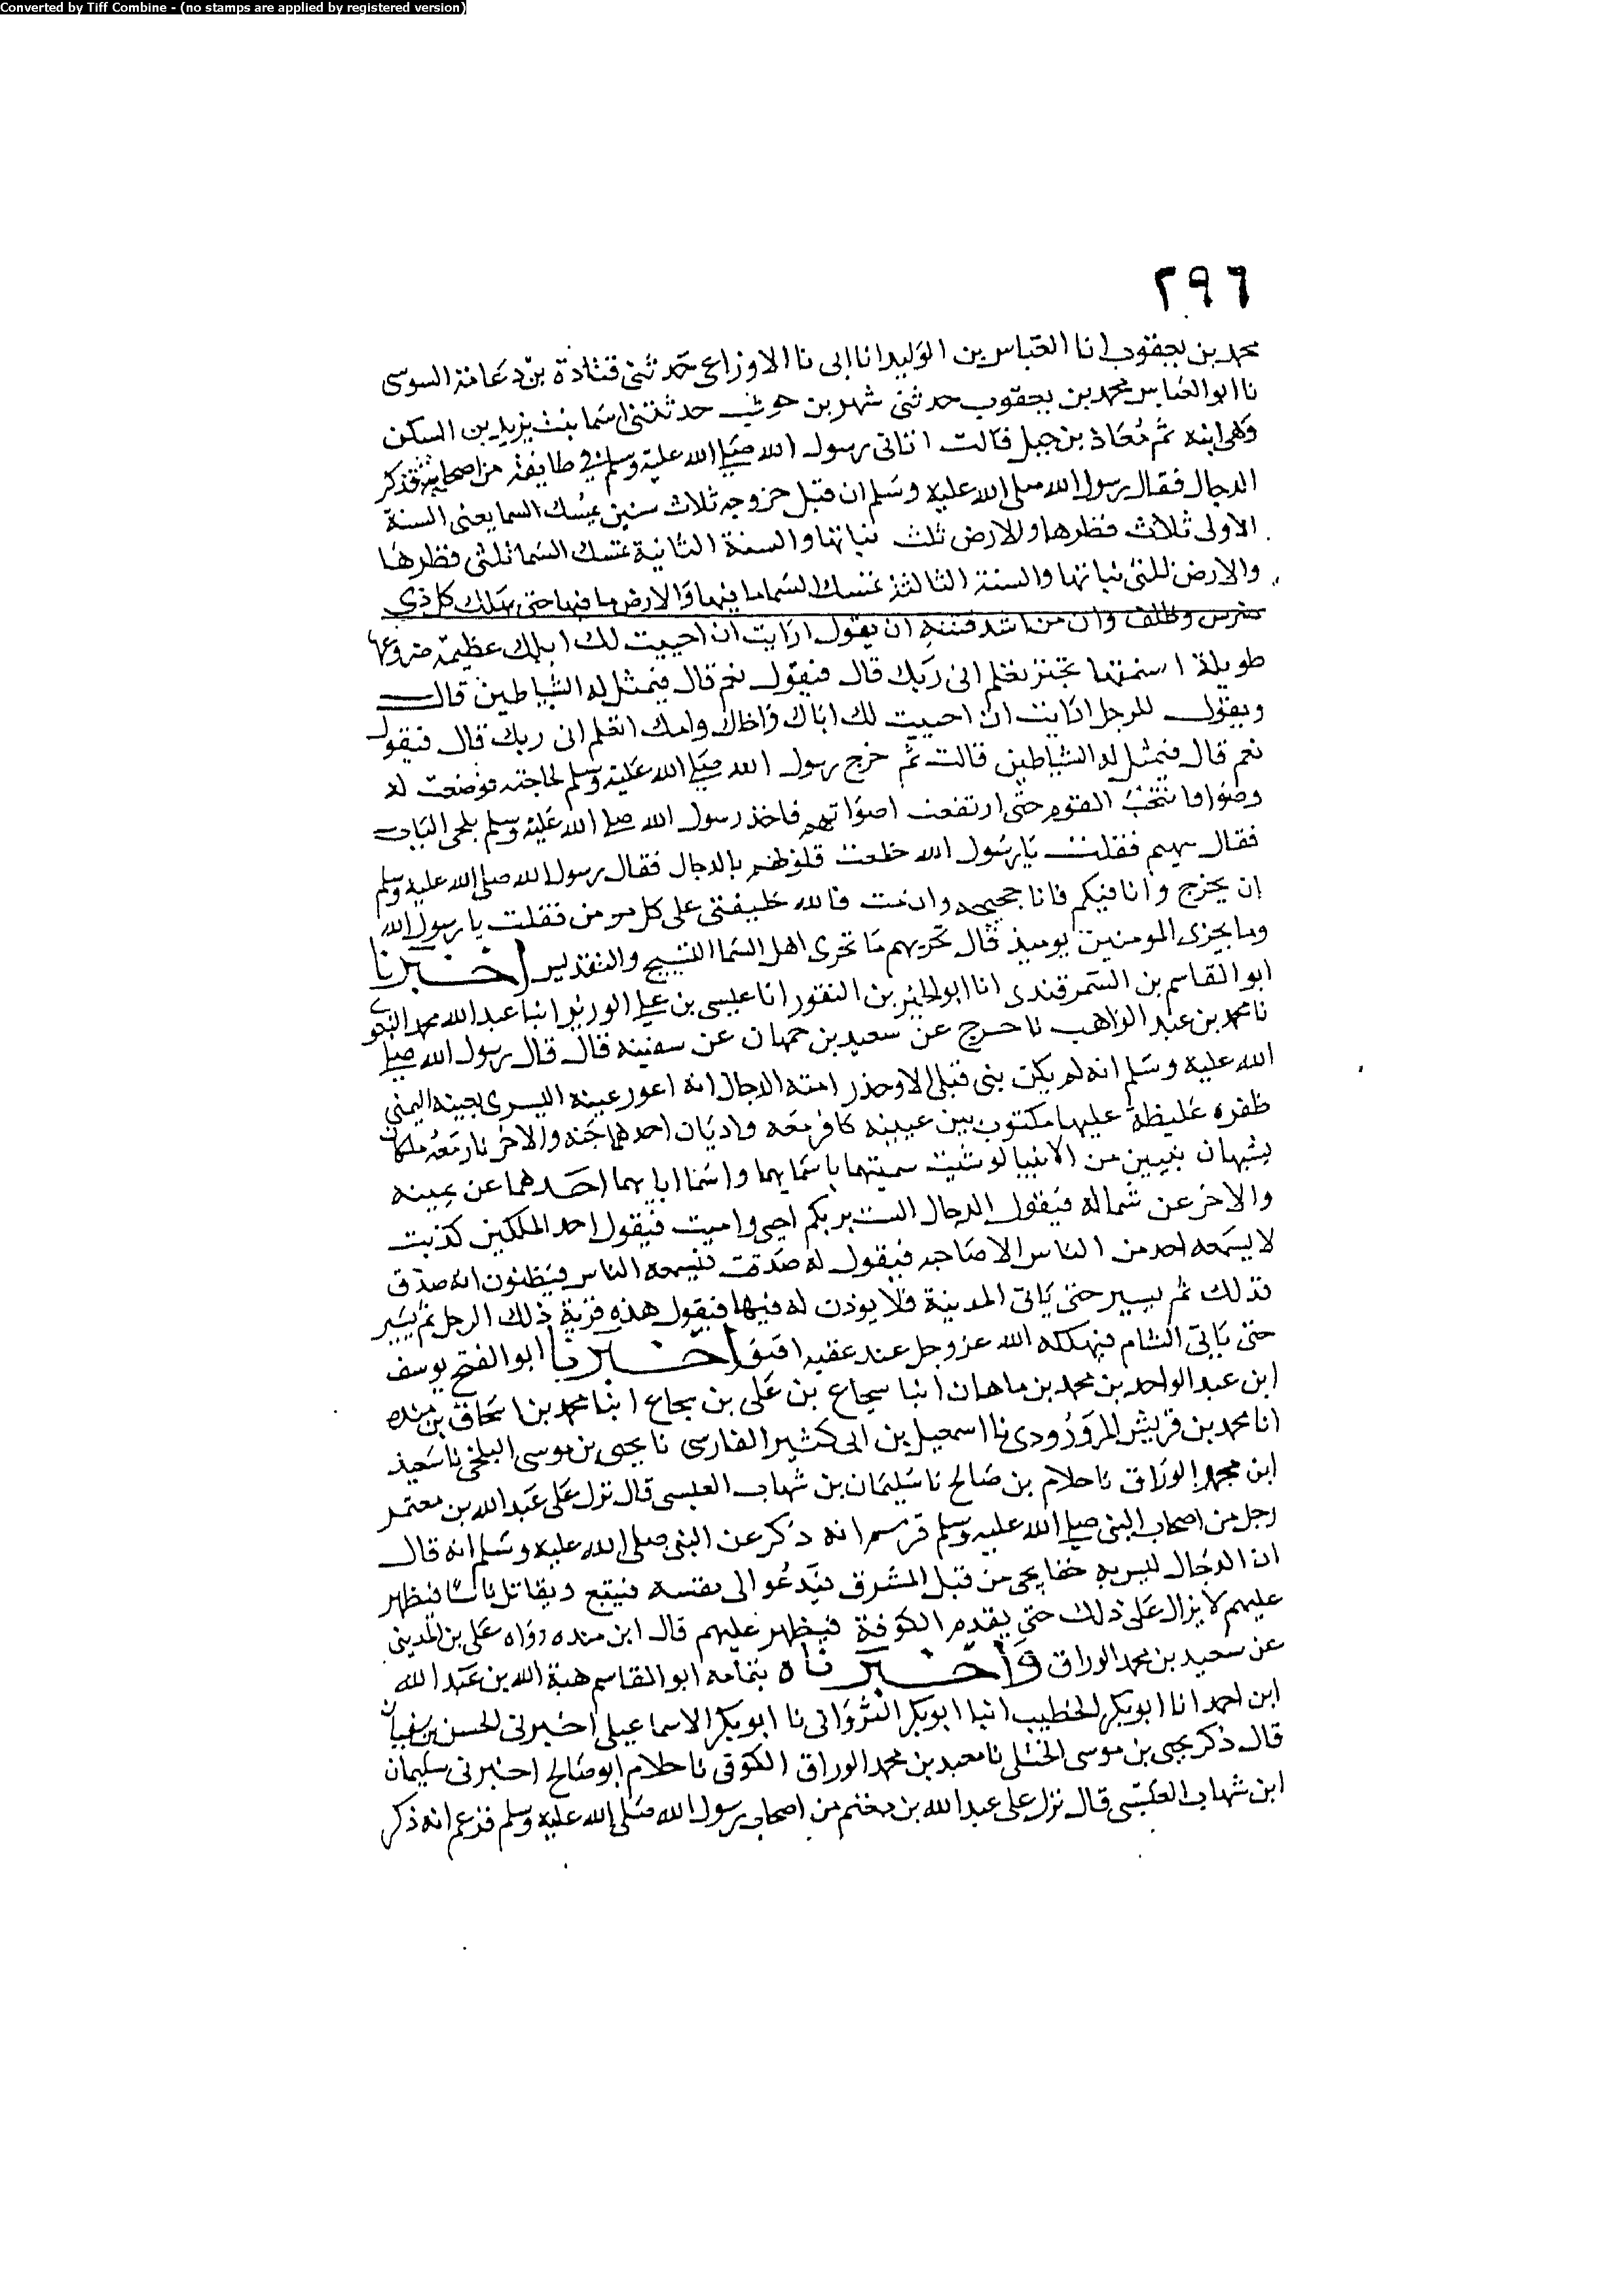 Converted by Tiff Combine - (no stamps are applied by registered version)
٢٩٦
محمد بن يعقوب انا العباس بن الوليد انا ابى نا الاوزاعى حدثنى قتادة بن دعامة السوسى
نا ابو العباس محمد بن يعقوب حدثنى شهر بن حوشب حدثتنى اسما بنت يزيد بن السكن
وهى ابنه عم معاذ بن جبل قالت اتانى رسول الله صلى الله عليه وسلم فى طايفة من اصحابه فذكر
الدجال فقال رسول الله صلى الله عليه وسلم ان قبل خروجه ثلاث سنين يمسك السما يعنى السنة
الاولى ثلاث قطرها وللارض ثلث نباتها والسنة الثانية تمسك السما ثلثى قطرها
والارض ثلثى نباتها والسنة الثالثة تمسك السما ما فيها والارض ما فيها حتى يهلك كل ذى
ضرس وظلف وان من اشد فتنته ان يقول ارايت ان احييت لك ابلك عظيمة ضروعها
طويلة اسنمتها تجتر تعلم انى ربك قال فيقول نعم قال فيمثل له الشياطين قال
ويقول للرجل ارايت ان احييت لك اباك واخاك وامك اتعلم انى ربك قال فيقول
نعم قال فيمثل له الشياطين قالت ثم خرج رسول الله صلى الله عليه وسلم لحاجته فوضعت له
وضوا فانتحب القوم حتى ارتفعت اصواتهم فاخذ رسول الله صلى الله عليه وسلم بلحى الباب
فقال مهيم فقلت يا رسول الله خلعت قلوبهم بالدجال فقال رسول الله صلى الله عليه وسلم
ان يخرج وانا فيكم فانا حجيجه وان مت فالله خليفتى على كل مومن فقلت يا رسول الله
وما يجزى المومنين يوميذ قال تجزيهم ما تجزى اهل السما التسبيح والتقديس اخبرنا
ابو القاسم بن السمرقندى انا ابو الحسين بن النقور انا عيسى بن على الوزير انبا عبد الله محمد البغوى
نا محمد بن عبد الواهب نا حشرج عن سعيد بن جمهان عن سفينه قال قال رسول الله صلى
الله عليه وسلم انه لم يكن نبى قبلى الا وحذر امته الدجال انه اعور عينه اليسرى بعينه اليمنى
ظفره غليظة عليها مكتوب بين عينيه كافر معه واديان احدهما جنه والاخر نار معه ملكان
يشبهان نبيين من الانبيا لو شيت سميتهما باسمايهما واسما ابايهما احدهما عن يمينه
والاخر عن شماله فيقول الدجال الست بربكم احيى واميت فيقول احد الملكين كذبت
لا يسمعه احد من الناس الا صاحبه فيقول له صدقت فيسمعه الناس فيظنون انه صدق
فذلك ثم يسير حتى ياتى المدينة فلا يوذن له فيها فيقول هذه قرية ذلك الرجل ثم يسير
حتى ياتى الشام فيهلكه الله عز وجل عند عقبه افيق اخبرنا ابو الفتح يوسف
ابن عبد الواحد بن محمد بن ماهان انبا شجاع بن على بن شجاع انبا محمد بن اسحاق بن منده
انا محمد بن قريش المروروذى نا اسمعيل بن ابى كثير الفارسى نا يحيى بن موسى البلخى نا سعيد
ابن محمد الوراق نا حلام بن صالح نا سليمان بن شهاب العبسى قال نزل على عبد الله بن معتمر
رجل من اصحاب النبى صلى الله عليه وسلم انه ذكر عن النبى صلى الله عليه وسلم انه قال
ان الدجال ليس به خفا يجى من قبل المشرق فيدعو الى نفسه فيتبع ويقاتل ناسا فيظهر
عليهم لا يزال على ذلك حتى يقدم الكوفة فيظهر عليهم قال ابن منده رواه على بن المدينى
عن سعيد بن محمد الوراق واخبرناه بتمامه ابو القاسم هبة الله بن عبد الله
ابن احمد انا ابو بكر الخطيب انبا ابو بكر البرقانى نا ابو بكر الاسماعيلى اخبرنى الحسن بن سفيان
قال ذكر يحيى بن موسى الختلى نا سعيد بن محمد الوراق الكوفى نا حلام ابو صالح اخبرنى سليمان
ابن شهاب العبسى قال نزل على عبد الله بن مغنم من اصحاب رسول الله صلى الله عليه وسلم فزعم انه ذكر